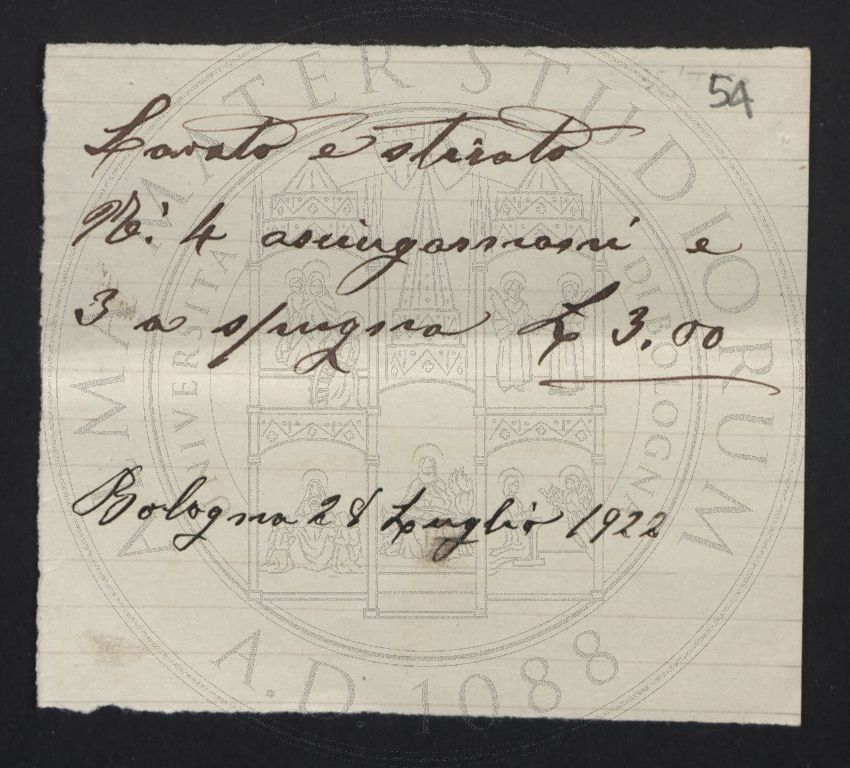 54
Lavato e stirato
N.° 4 asciugamani e
3 a spugna £ 3,00
Bologna 28 Luglio 1922
ALMA MATER STUDIORUM
UNIVERSITÀ DI BOLOGNA
A.D. 1088